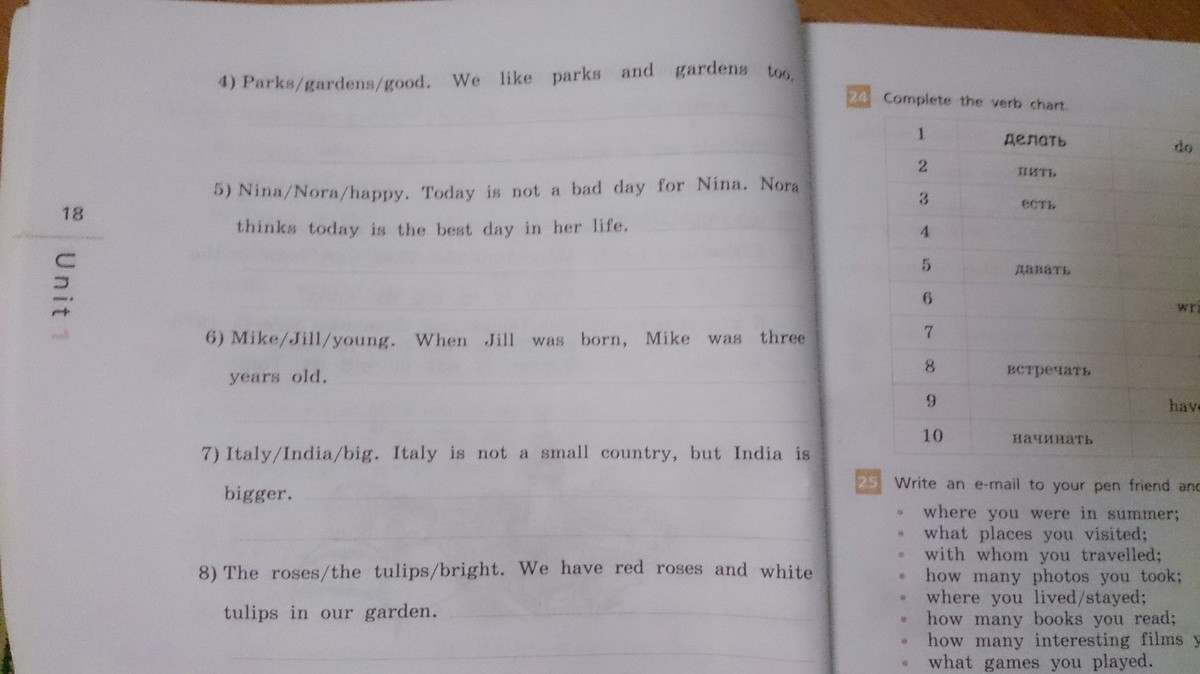 4) Parks/gardens/good. We like parks and gardens too.
5) Nina/Nora/happy. Today is not a bad day for Nina. Nora
thinks today is the best day in her life.
6) Mike/Jill/young. When Jill was born, Mike was three
years old.
7) Italy/India/big. Italy is not a small country, but India is
bigger.
8) The roses/the tulips/bright. We have red roses and white
tulips in our garden.
18
Unit 1
24 Complete the verb chart.
1 делать do
2 пить
3 есть
4
5 давать
6
7
8 встречать
9
10 начинать
25 Write an e-mail to your pen friend
• where you were in summer;
• what places you visited;
• with whom you travelled;
• how many photos you took;
• where you lived/stayed;
• how many books you read;
• how many interesting films
• what games you played.